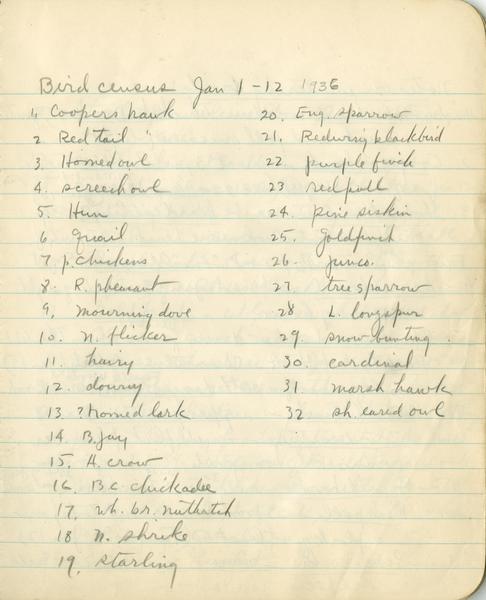 Bird census Jan 1-12 1936
1. Coopers hawk
2. Red tail "
3. Horned owl
4. screech owl
5. Hun
6. Quail
7. p. chickens
8. R. pheasant
9. mourning dove
10. n. flicker
11. hairy
12. downy
13. ? horned lark
14. B. jay
15. A. crow
16. B c chickadee
17. wh. br. nuthatch
18. n. shrike
19. starling
20. Eng. sparrow
21. Redwing blackbird
22. purple finch
23. redpoll
24. pine siskin
25. goldfinch
26. junco.
27. tree sparrow
28. L. longspur
29. snow bunting.
30. cardinal
31. marsh hawk
32. sh. eared owl